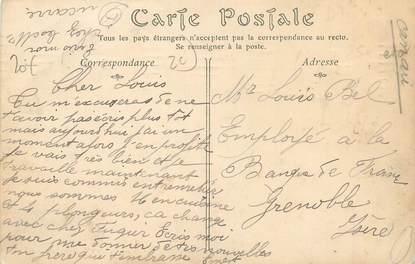 Carte Postale
Tous les pays étrangers n'acceptent pas la correspondance au recto.
Se renseigner à la poste.
Correspondance
Adresse
Cher Louis
Tu m'excuseras de ne
t'avoir pas écris plus tôt
mais aujourd'hui j'ai un
moment alors j'en profite
Je vais très bien et je
travaille maintenant
Je suis commis entremetier
nous sommes 14 en cuisine
et 3 plongeurs, ca change
avec chez Écris moi
pour me donner de tes nouvelles
Ton frère qui t'embrasse
Mr Louis Bel
Employé à la
Banque de France
Grenoble
Isère
Écris moi
chez